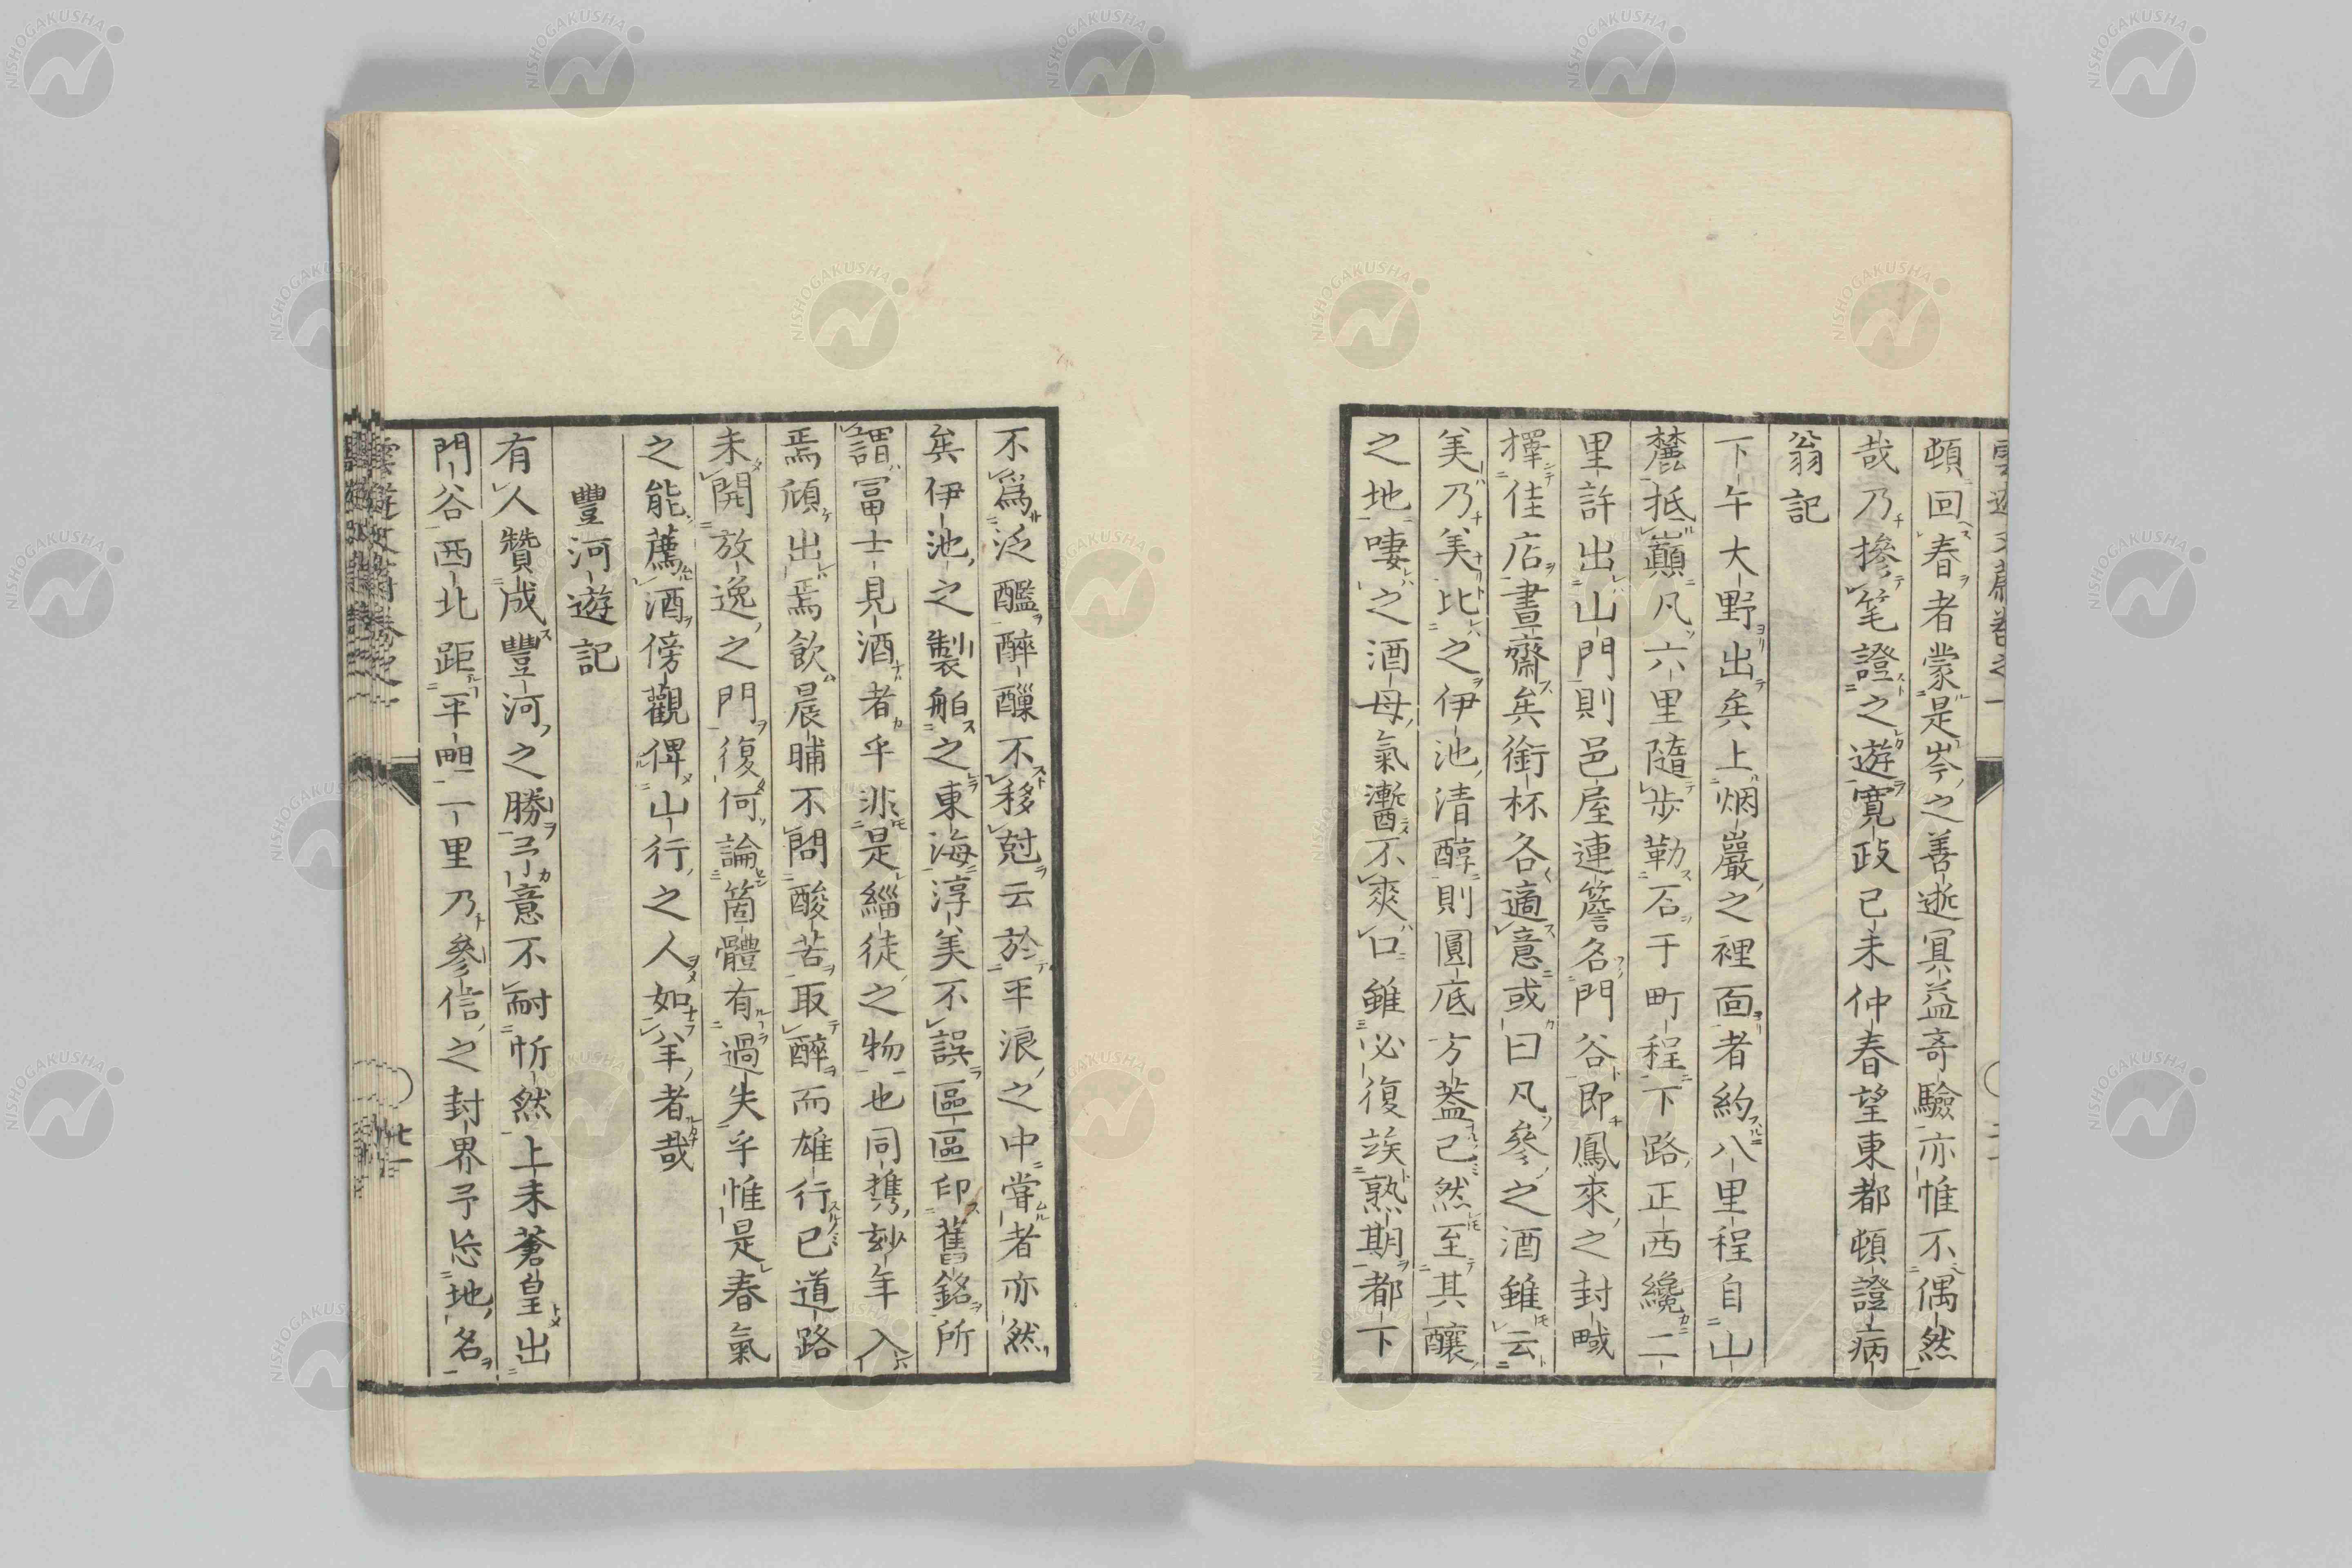 頓回春者蒙是岑之善逝冥益竒驗亦惟不偶然
哉乃摻筆證之遊寛政己未仲春望東都頓證病
翁記
下午大野出矣上烟巖之裡面者約八里程自山
麓抵巔凡六里隨歩勒石于町程下路正西纔二
里許出山門則邑屋連簷名門谷即鳳來之封域
擇佳店晝齋矣銜杯各適意或曰凡參之酒雖云
美乃美比之伊池清醇則圓底方蓋已然至其釀
之地唼之酒母氣漸不爽口雖必復竢熟期都下
不爲泛醞醉醺不移尅云於平浪之中嘗者亦然
矣伊池之製舶之東海淳美不誤區區印舊銘所
謂冨士見酒者乎非是緇徒之物也同携玅年入
焉頎出焉飲晨晡不問酸苦取醉而雄行已道路
未開放逸之門復何論箇體有過失乎惟是春氣
之能薦酒傍觀俾山行之人如羊者哉
豐河遊記
有人贊成豐河之勝予意不耐忻然上未蒼皇出
門谷西北距平一里乃參信之封界予忩地名